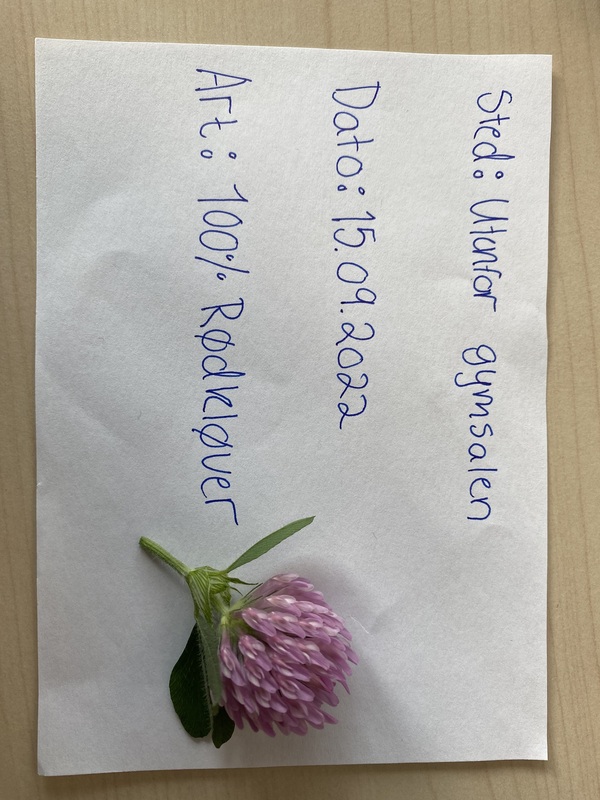 Sted: Utanfor gymsalen
Dato: 15.09.2022
Art: 100% Rødkløver